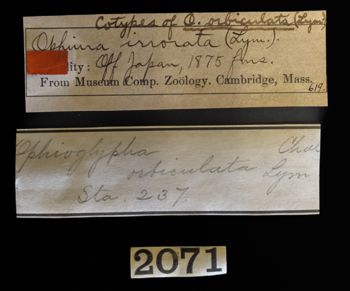 Cotypes of O. orbiculata (Lym.)
Ophiura irrorata (Lym.).
ity: Off Japan, 1875 fms.
From Museum Comp. Zoology, Cambridge, Mass.
619.
Ophioglypha Chal
orbiculata Lym
Sta. 237
2071